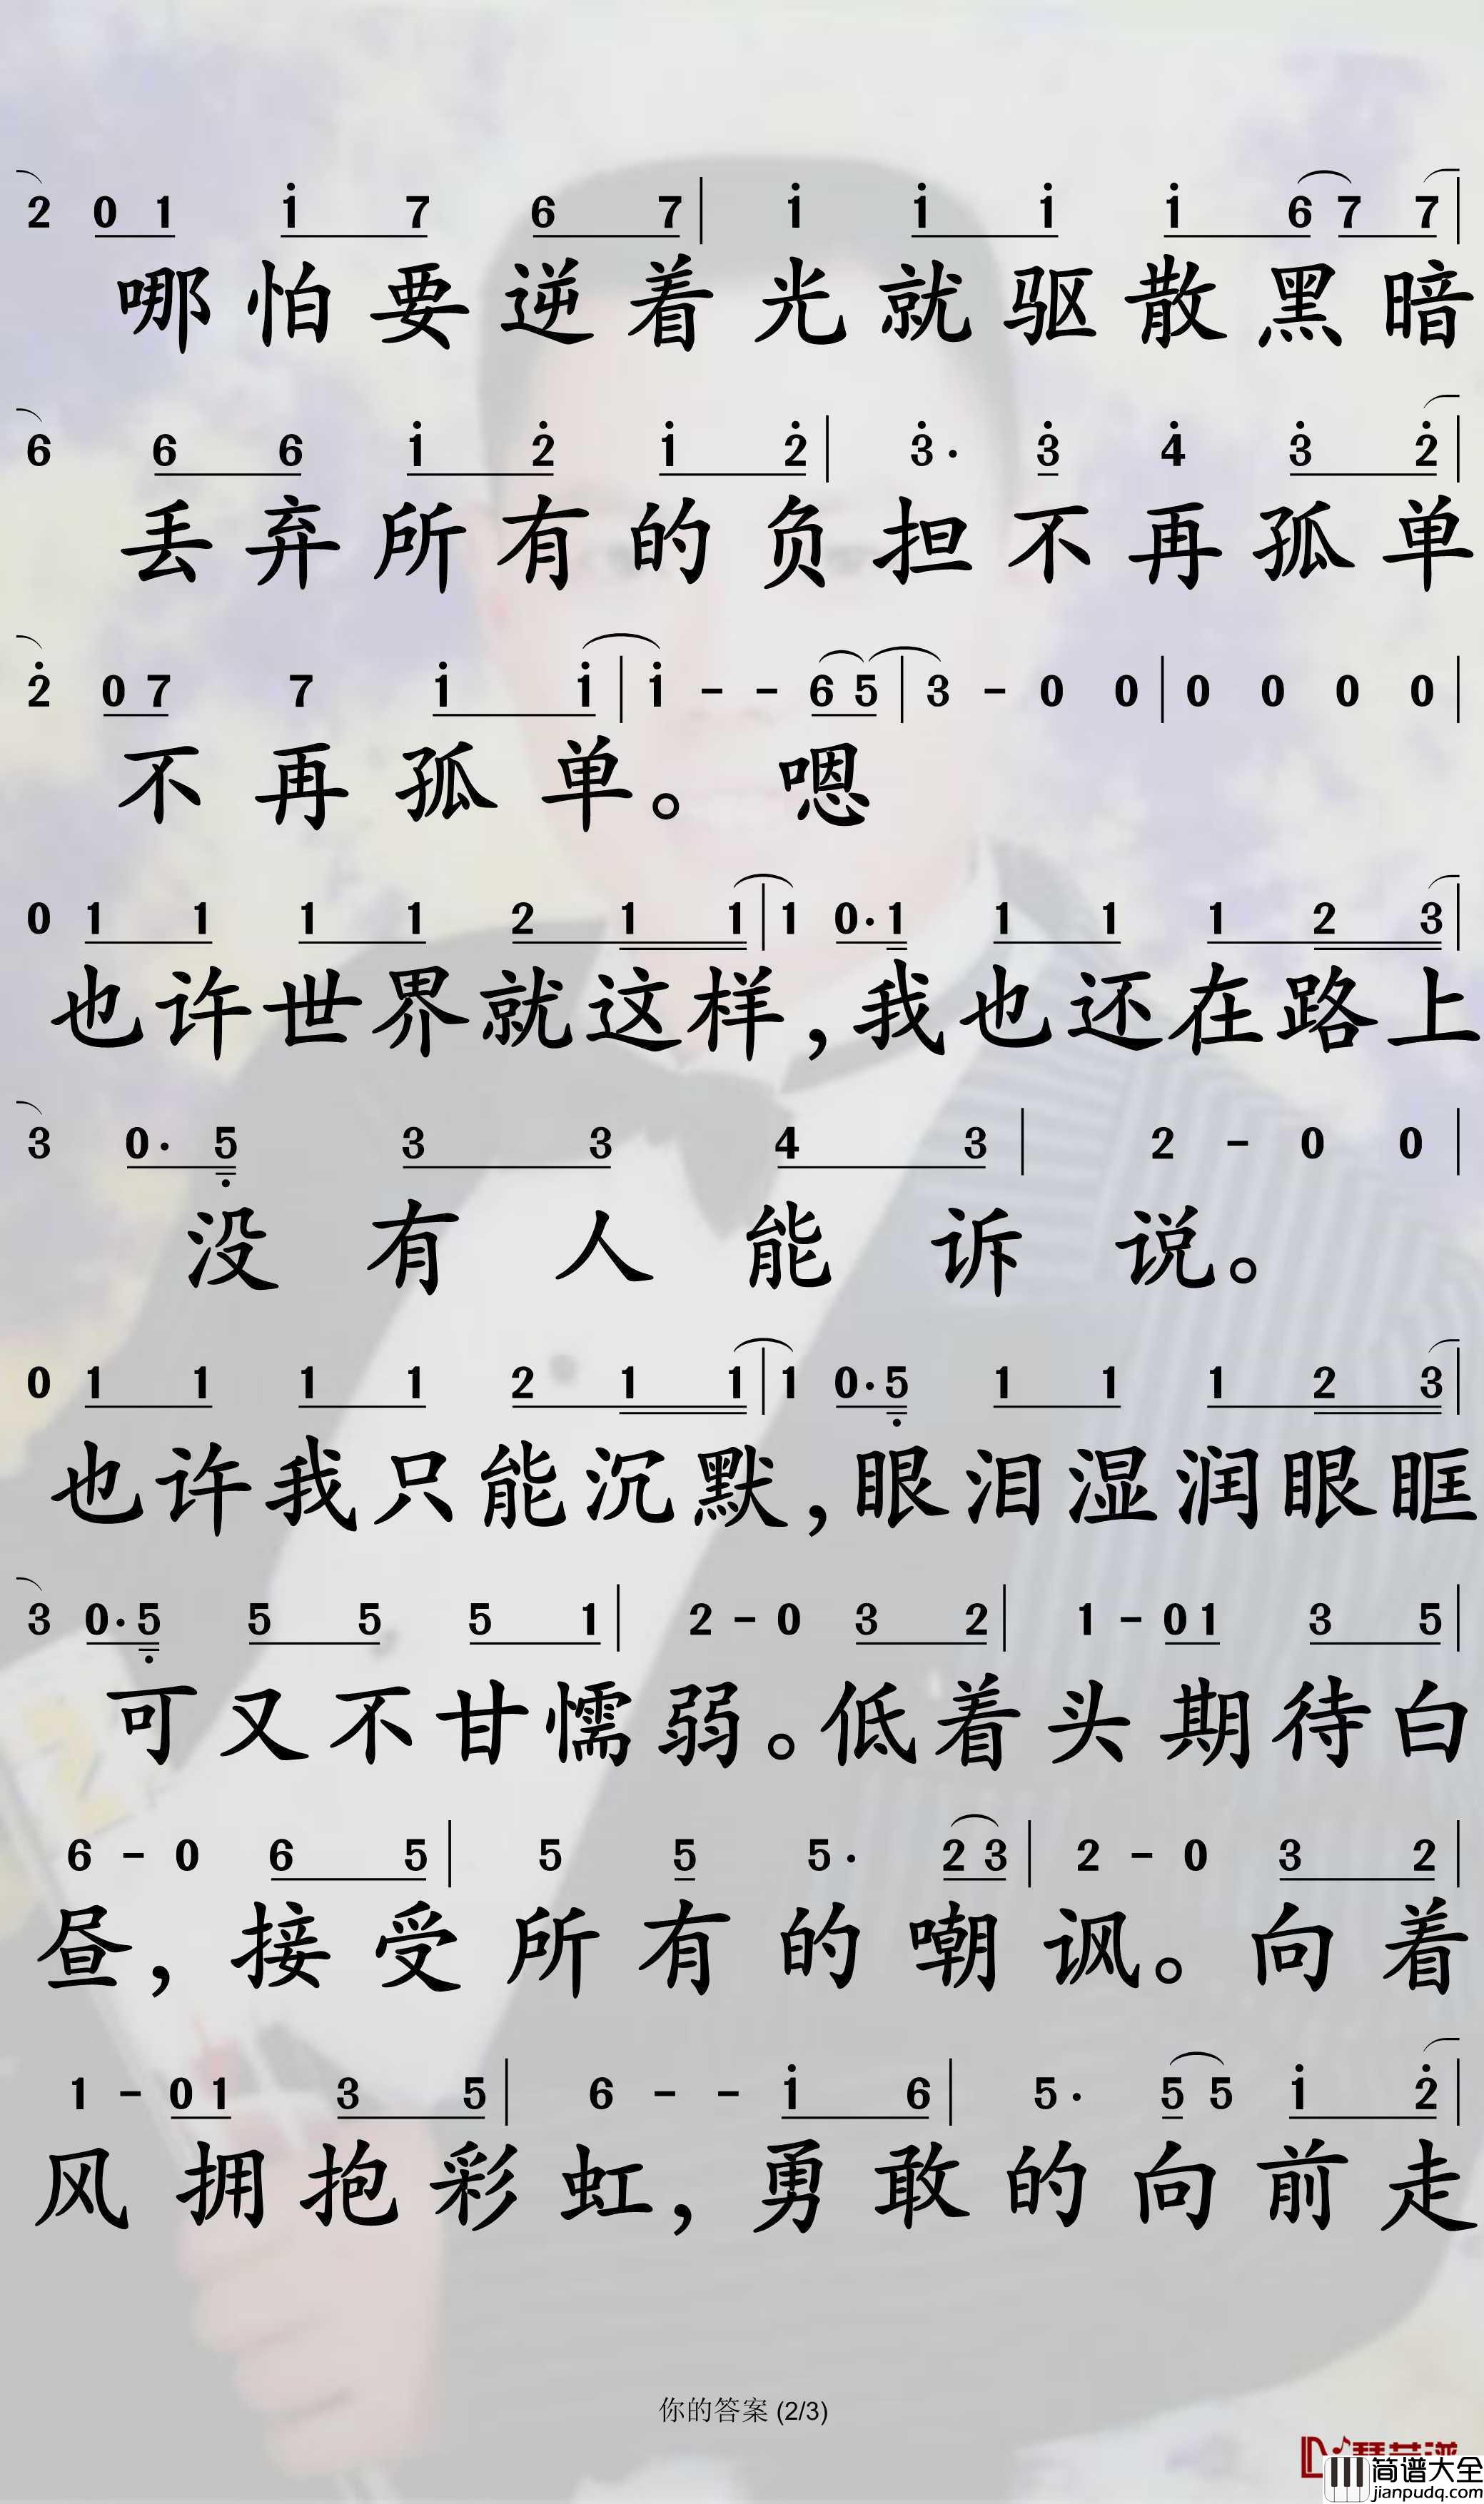 2 0 1 i 7 6 7 | i i i i 6 7 7 |
哪怕要逆着光就驱散黑暗
6 6 6 i 2 i 2 | 3· 3 4 3 2 |
丢弃所有的负担不再孤单
2 0 7 7 i i | i - - 6 5 | 3 - 0 0 | 0 0 0 0 |
不再孤单。嗯
0 1 1 1 1 2 1 1 | 1 0· 1 1 1 1 2 3 |
也许世界就这样,我也还在路上
3 0· 5 3 3 4 3 | 2 - 0 0 |
没有人能诉说。
0 1 1 1 1 2 1 1 | 1 0· 5 1 1 1 2 3 |
也许我只能沉默,眼泪湿润眼眶
3 0· 5 5 5 5 1 | 2 - 0 3 2 | 1 - 0 1 3 5 |
可又不甘懦弱。低着头期待白
6 - 0 6 5 | 5 5 5· 2 3 | 2 - 0 3 2 |
昼,接受所有的嘲讽。向着
1 - 0 1 3 5 | 6 - - i 6 | 5· 5 5 i 2 |
风拥抱彩虹,勇敢的向前走
你的答案 (2/3)
简谱大全
jianpudq.com